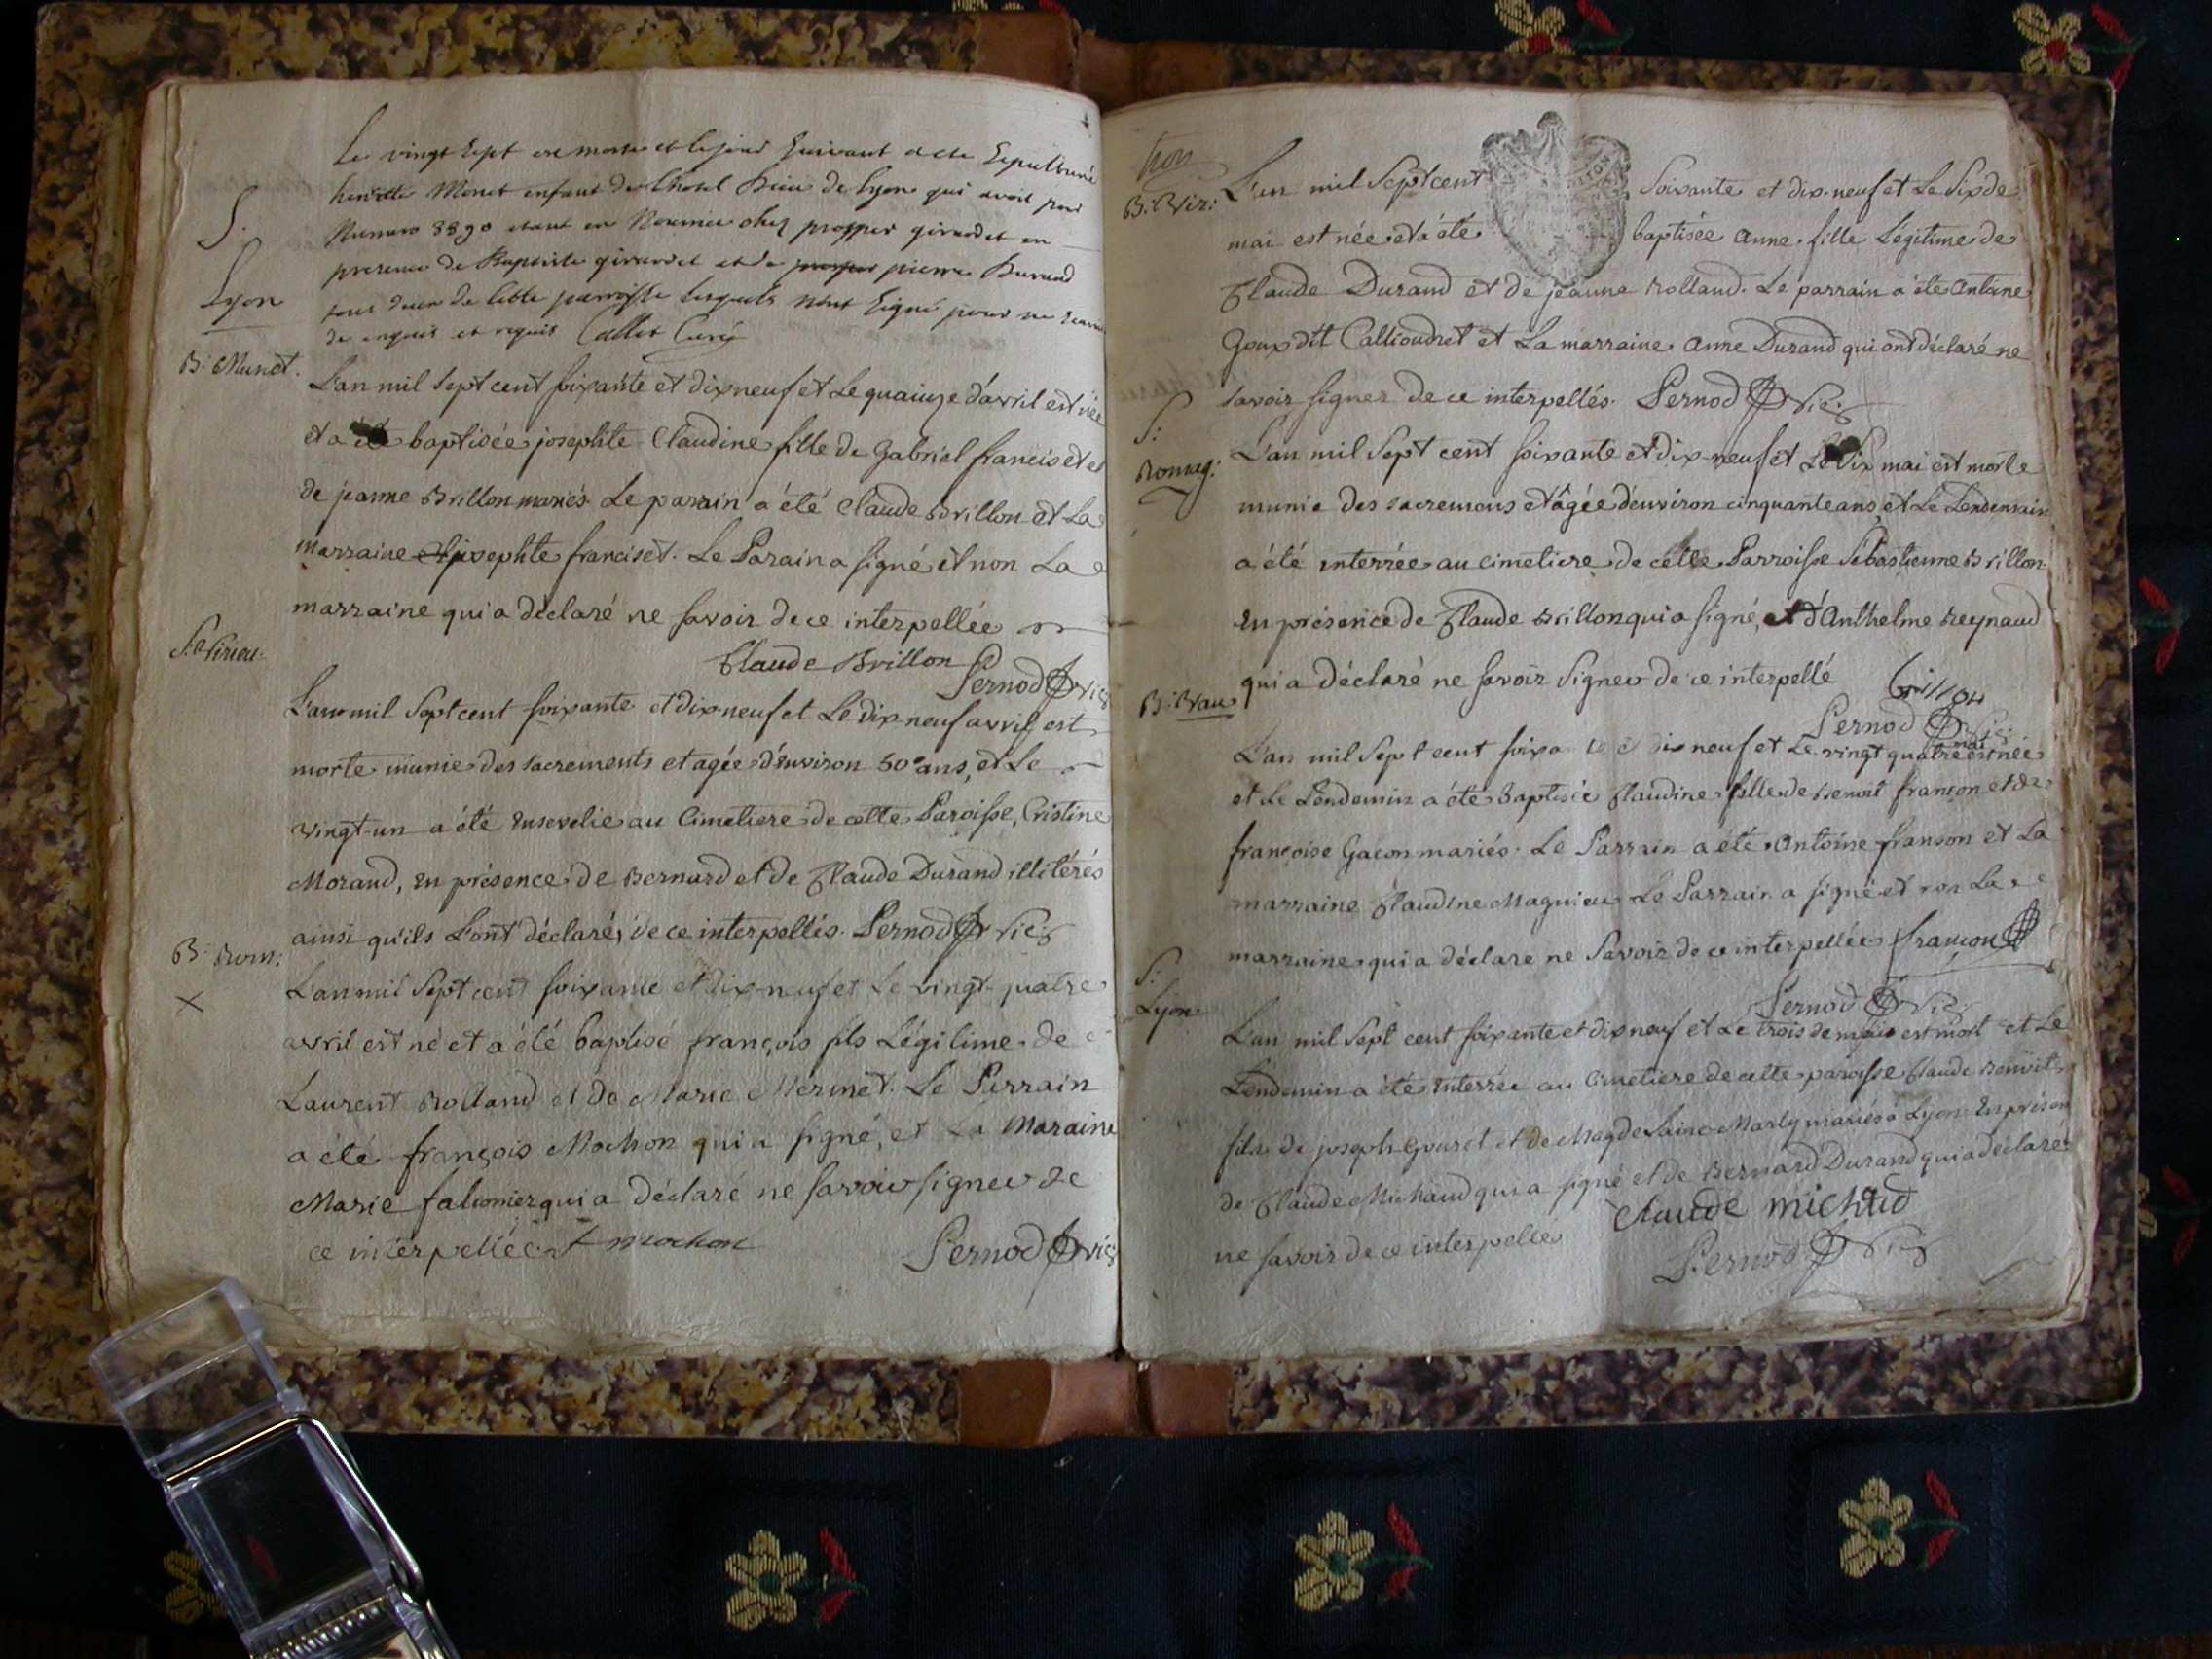 Le vingt sept est morte et le jour suivant a été Sepulturée
Monet enfant de l'hotel Dieu de lyon qui avoit pour
Numero 8890 etant en Nourrice chez prosper girardet en
presence de Baptiste girardet et de prosper pierre Durand
tous deux de cette parroisse lesquels n'ont signé pour ne scavoir
de enquis et requis Callet Curé
S.
Lyon
B: Munet.
L'an mil Sept cent soixante et dix neuf et Le quainze d'avril est née
et a été baptisée josephte Claudine fille de Gabriel franciset et
de jeanne Brillon mariés. Le parrain a été Claude Brillon et La
marraine josephte franciset. Le Parain a signé et non La
marraine qui a déclaré ne savoir de ce interpellée
Claude Brillon Pernod Vic:
S. Pirieu.
L'an mil Sept cent soixante et dix neuf et Le dix neuf avril est
morte munie des sacrements et agée d'environ 50 ans, et Le
vingt-un a été ensevelie au Cimetiere de cette Paroisse, Cristine
Morand, en présence de Bernard et de Claude Durand illitérés
ainsi qu'ils L'ont déclaré, de ce interpellés. Pernod Vic:
B: Rom:
X
L'an mil Sept cent soixante et dix-neuf et Le vingt-quatre
avril est né et a été baptisé françois fils Légitime de
Laurent Rolland et de Marie Mermet. Le Parrain
a été françois Mochon qui a signé, et La Maraine
Marie falconier qui a déclaré ne savoir signer de
ce interpellée f mochon
Pernod vic:
trois
B: Vir:
L'an mil Sept cent Soixante et dix-neuf et Le Six de
mai est née et a été baptisée Anne fille Légitime de
Claude Durand et de jeanne Rolland. Le parrain a été Antoine
Goux dit Callioudret et La marraine Anne Durand qui ont déclaré ne
savoir signer de ce interpellés. Pernod Vic:
S:
Romag:
L'an mil Sept cent soixante et dix-neuf et Le Six mai est morte
munie des sacremens et âgée d'environ cinquante ans, et Le Lendemain
a été enterrée au cimetiere de cette Parroisse Sébastienne Brillon
en présence de Claude Brillon qui a signé, et d'Anthelme Reynaud
qui a déclaré ne savoir signer de ce interpellé Brillon
Pernod Vic:
B: Vau
L'an mil Sept cent soixante et dix neuf et Le vingt quatre mai est née
et Le Lendemin a été Baptisée Claudine fille de Benoit françon et de
françoise Gacon mariés. Le Parrain a été Antoine françon et La
marraine Claudine Magnieu Le Parrain a signé et non La
marraine qui a déclaré ne Savoir de ce interpellée françon
Pernod Vic:
S:
Lyon
L'an mil Sept cent soixante et dix neuf et Le trois de mai est mort et Le
Lendemin a été enterrée au Cimetiere de cette paroisse Claude Benoit
fils de joseph Gouret et de Magdelaine Marly mariés à Lyon. En présence
de Claude Michaud qui a signé et de Bernard Durand qui a déclaré
ne savoir de ce interpellés Claude michud
Pernod Vic: